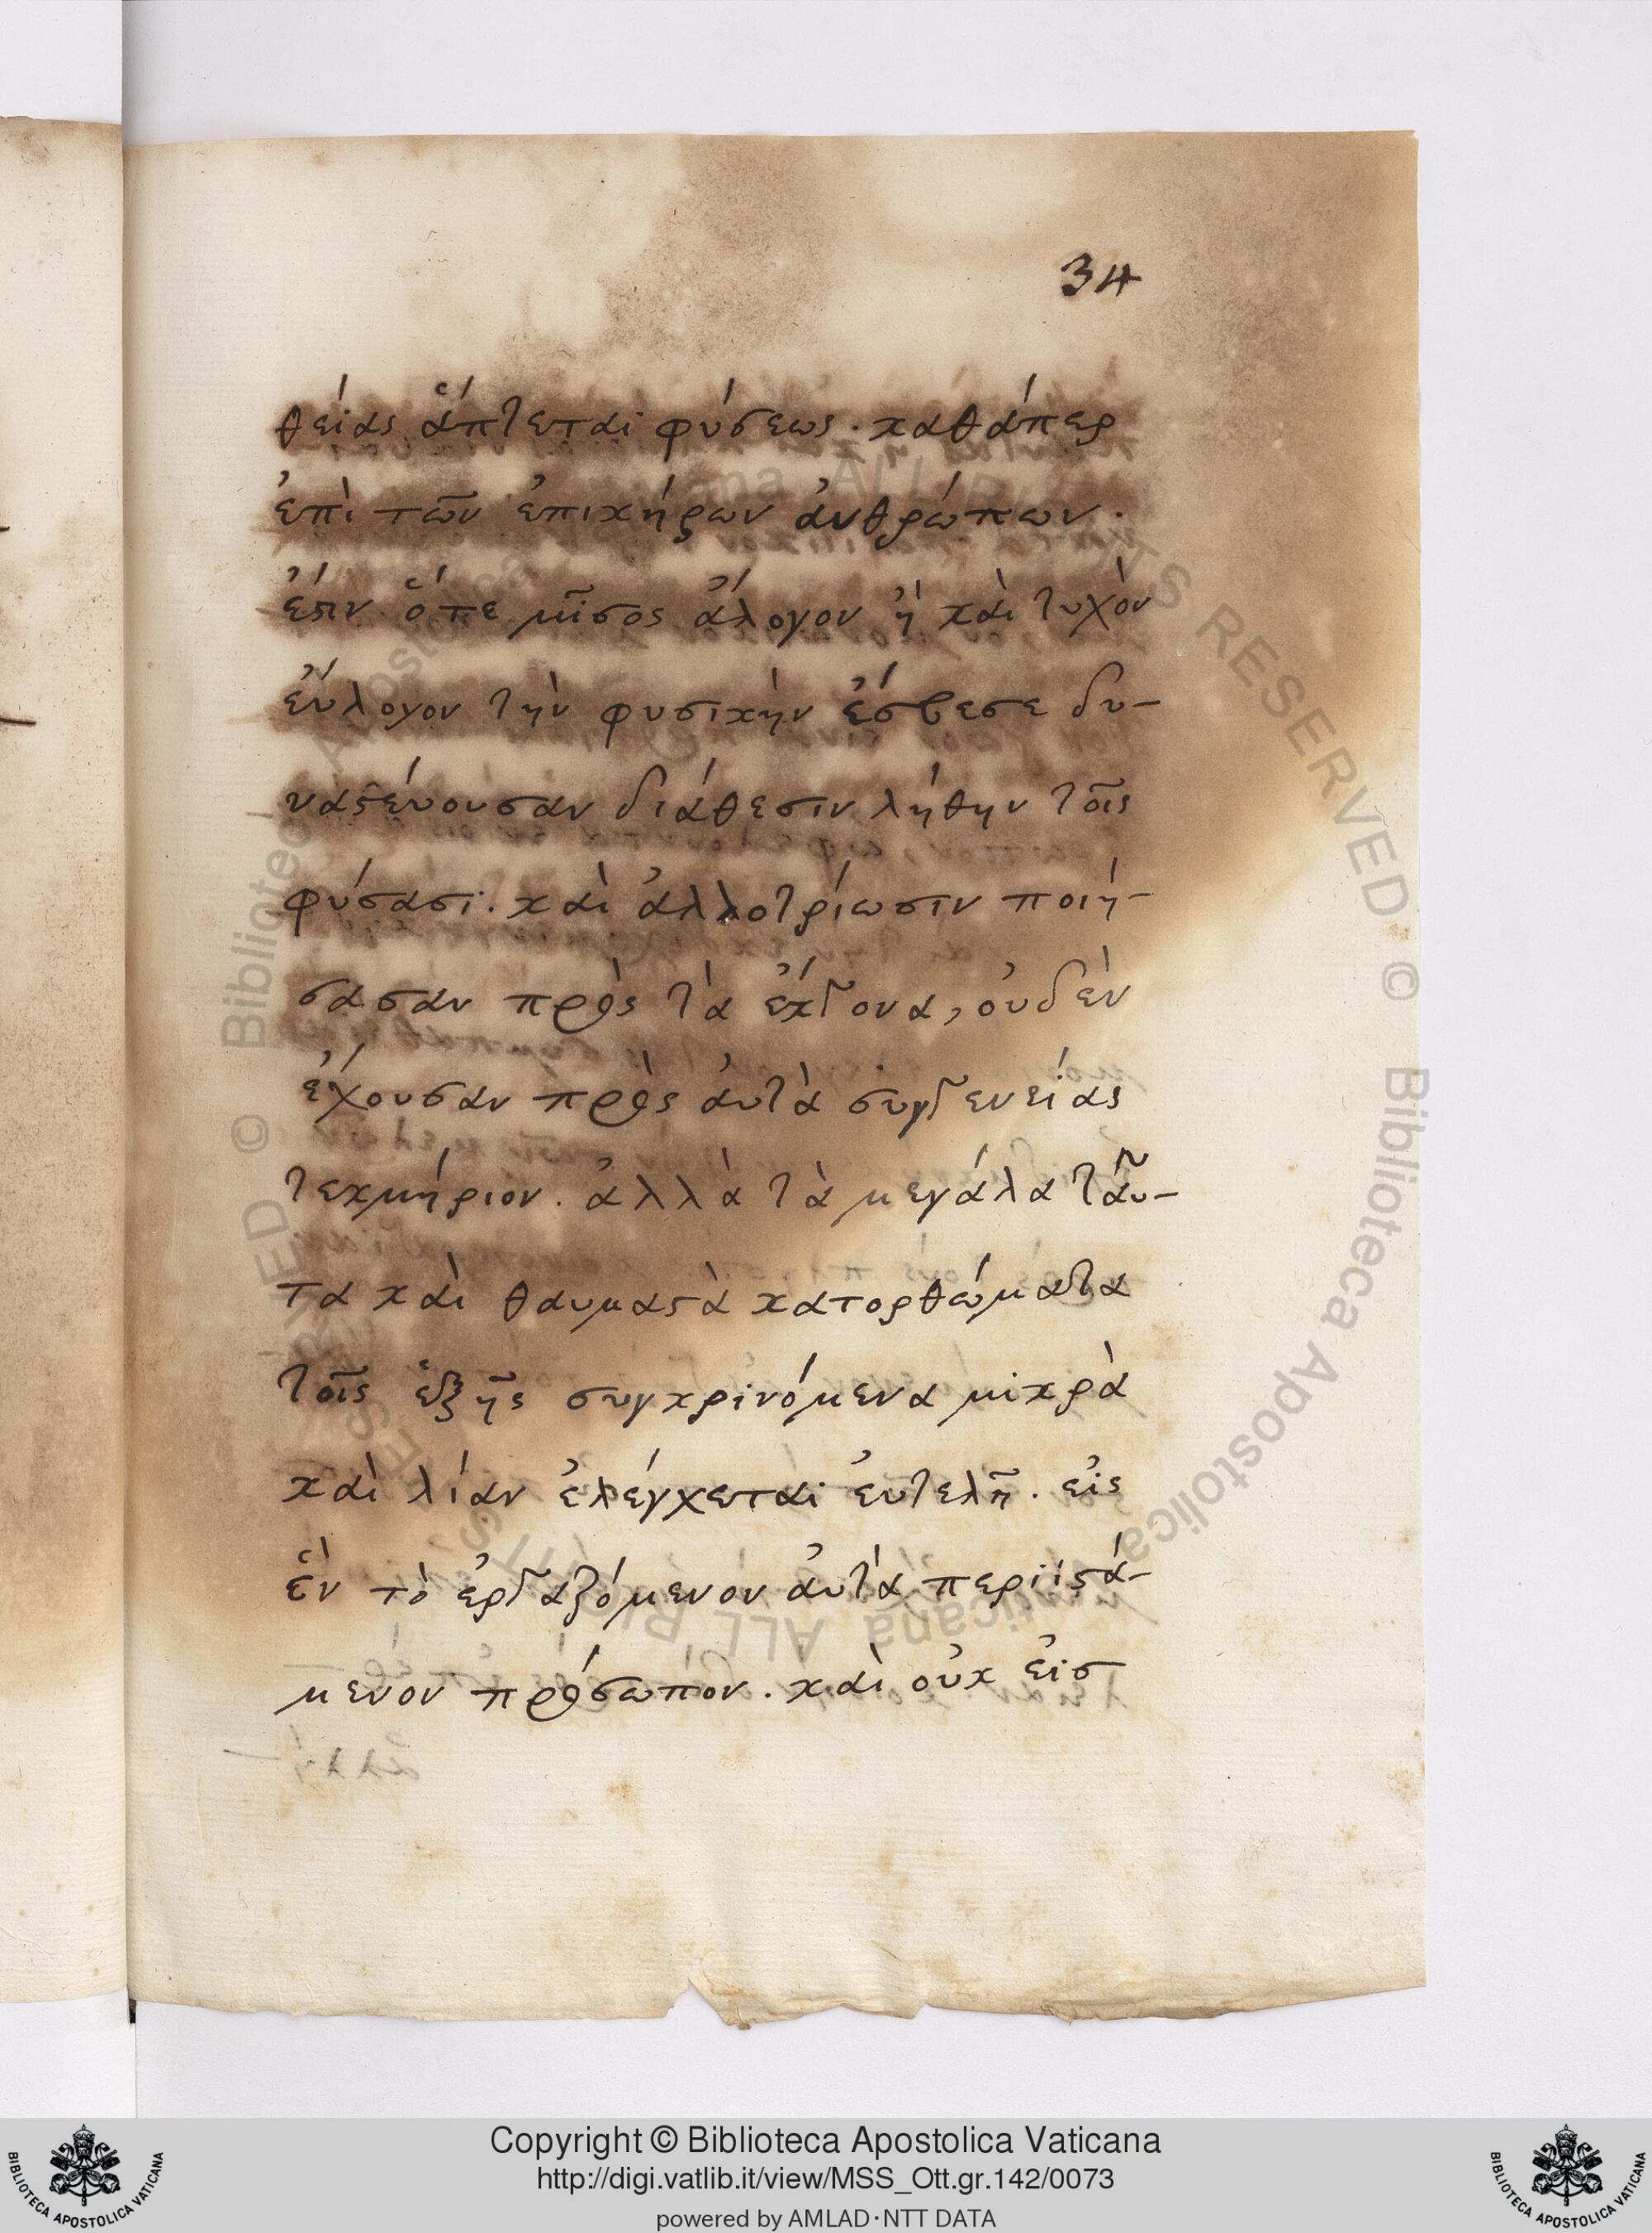 34
θείας ἅπτεται φύσεως. καθάπερ
ἐπὶ τῶν ἐπικήρων ἀνθρώπων.
ἔστιν ὅτε μῖσος ἄλογον ἢ καὶ τυχὸν
εὔλογον τὴν φυσικὴν ἔσβεσε δυ-
ναστεύουσαν διάθεσιν λήθην τοῖς
φύσασι. καὶ ἀλλοτρίωσιν ποιή-
σασαν πρὸς τὰ ἔκγονα, οὐδὲν
ἔχουσαν πρὸς αὐτὰ συγγενείας
τεκμήριον. ἀλλὰ τὰ μεγάλα ταῦ-
τα καὶ θαυμαστὰ κατορθώματα
τοῖς ἑξῆς συγκρινόμενα μικρὰ
καὶ λίαν ἐλέγχεται εὐτελῆ. εἰς
ἓν τὸ ἐργαζόμενον αὐτὰ περιϊστά-
μενον πρόσωπον. καὶ οὐκ εἰσ
Copyright © Biblioteca Apostolica Vaticana
http://digi.vatlib.it/view/MSS_Ott.gr.142/0073
powered by AMLAD·NTT DATA